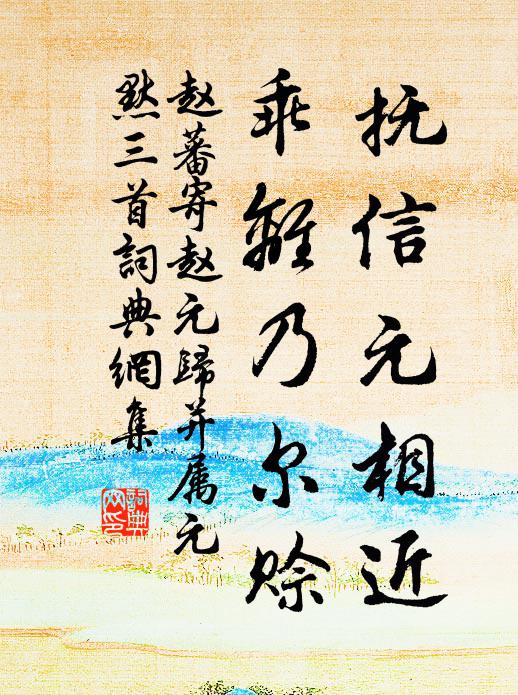 抚信元相近
乖離乃尔赊
赵蕃寄赵元歸并属元
默三首詞典網集
詞典網印